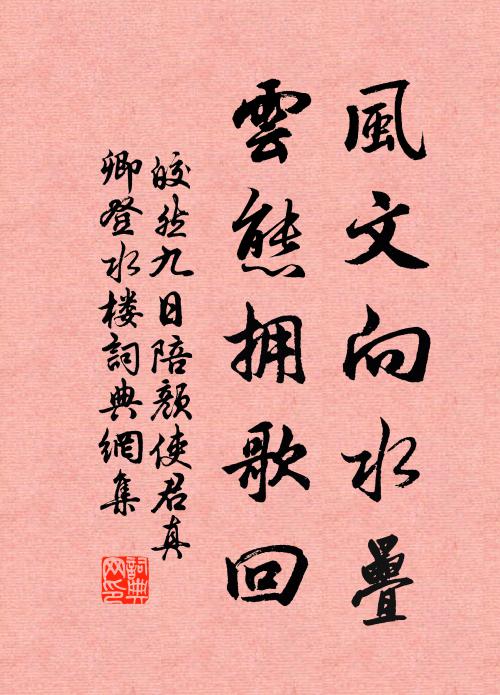 風文向水疊
雲態拥歌回
皎然九日陪顏使君真
卿登水楼詞典網集
詞典网印